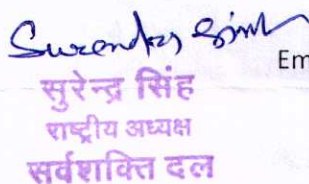 Surendra Singh
Em
सुरेन्द्र सिंह
राष्ट्रीय अध्यक्ष
सर्वशक्ति दल